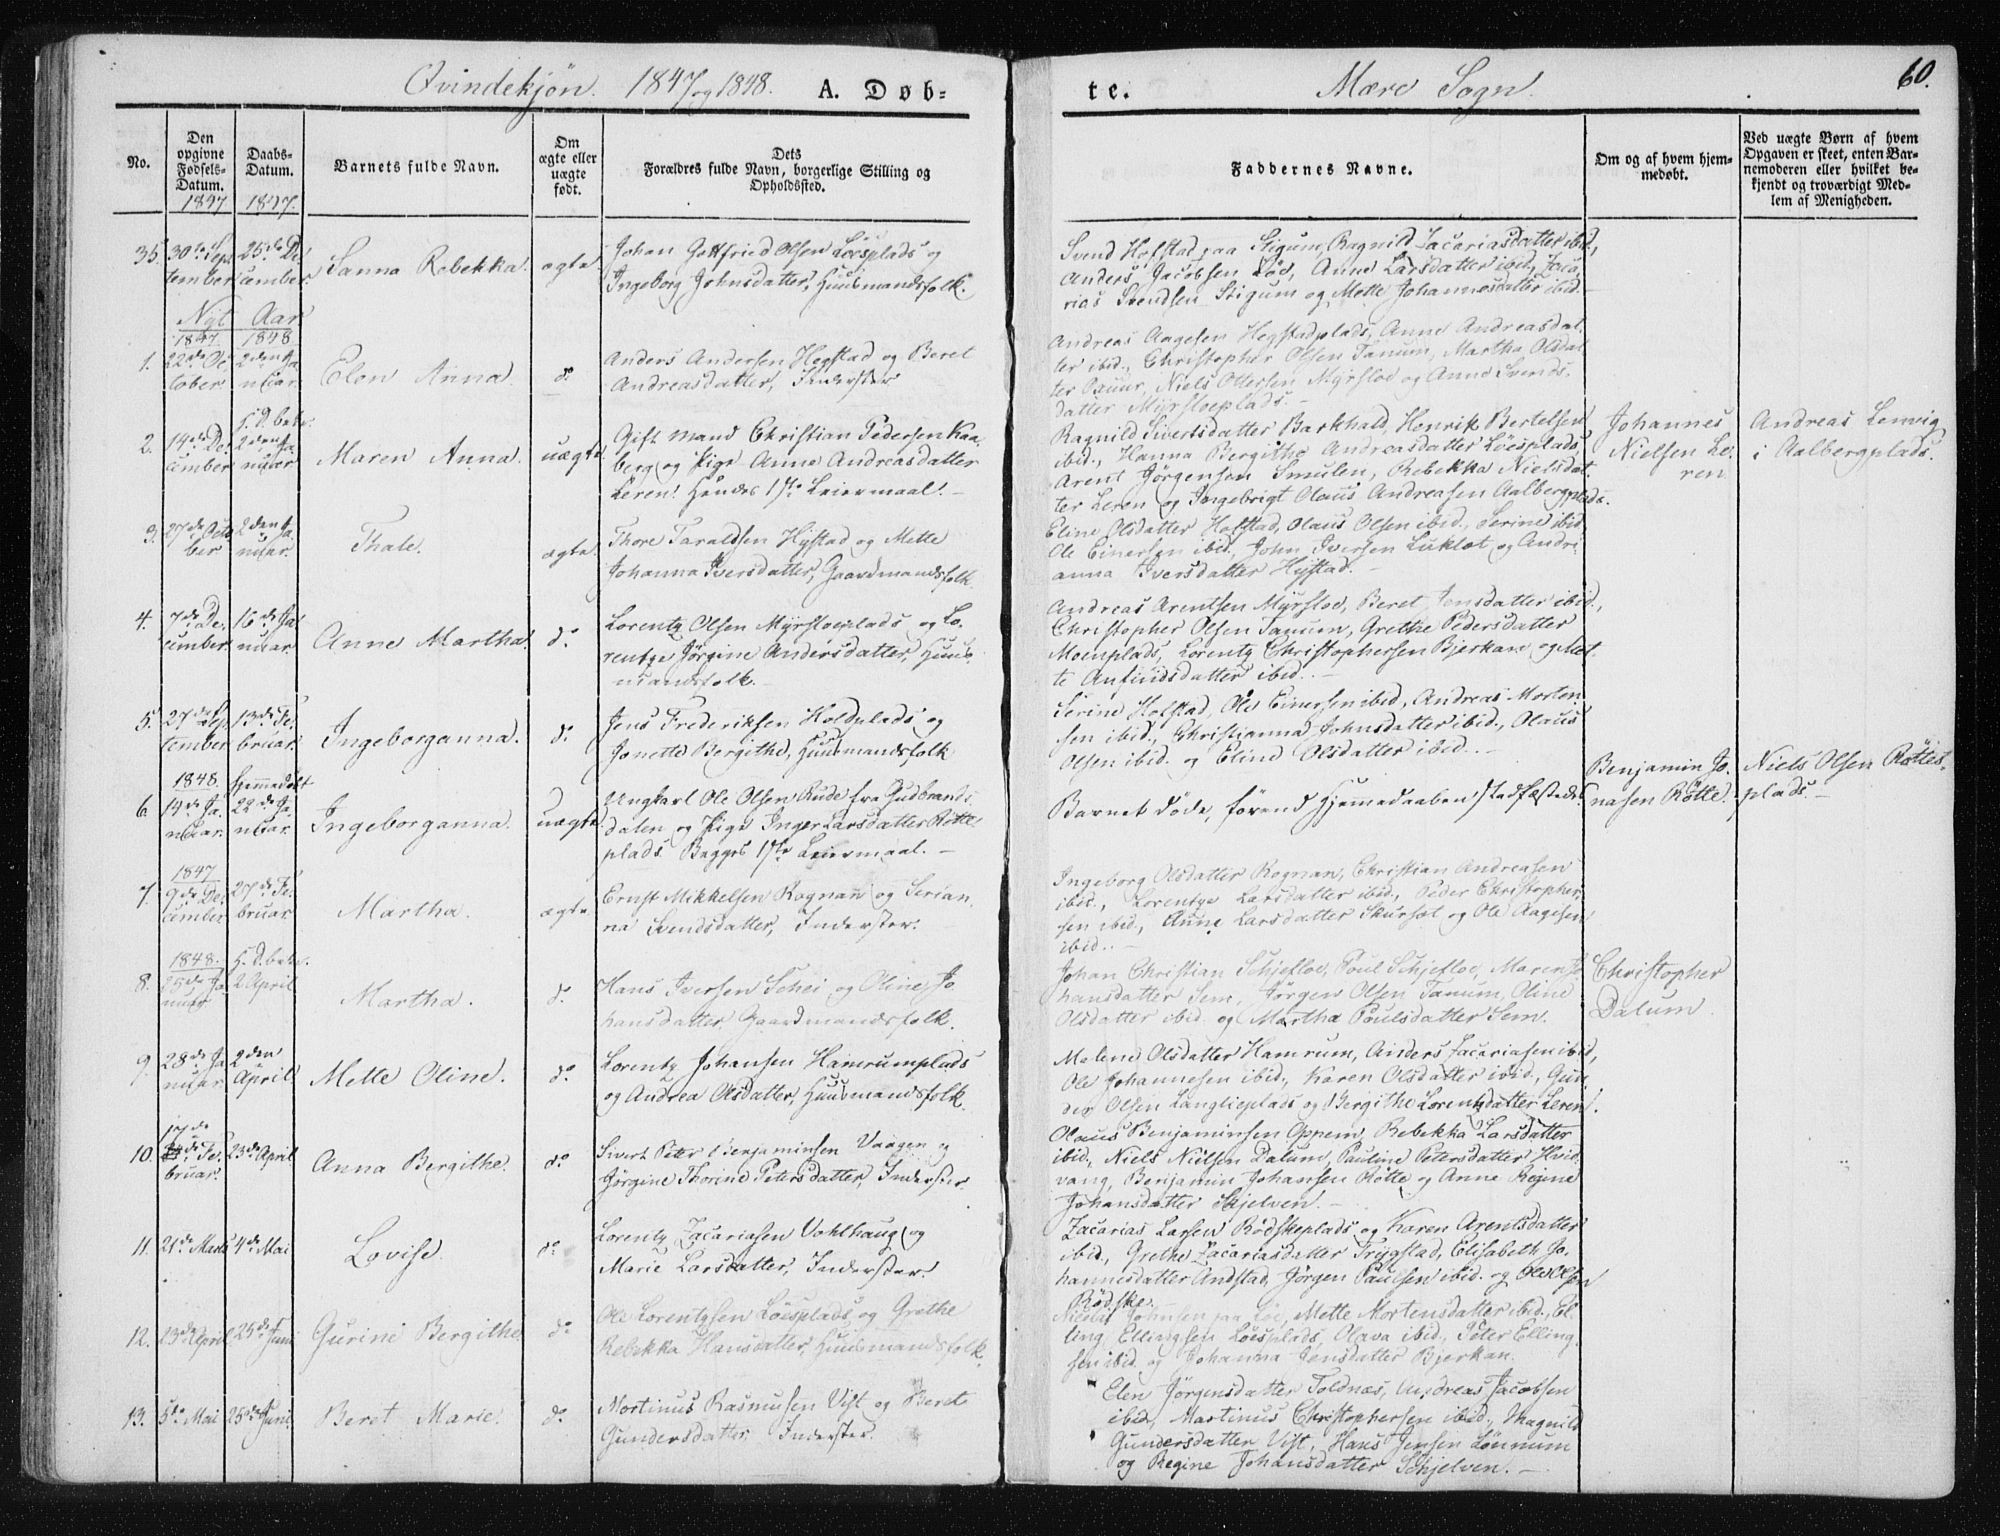 Qvindekjøn. 1847 og 1848. A. Døb-
te. Mære Sogn. 60.
No.
Den opgivne Fødsels-Datum. 1847
Daabs-Datum. 1847.
Barnets fulde Navn.
Om ægte eller uægte født.
Dets Forældres fulde Navn, borgerlige Stilling og Opholdssted.
Faddernes Navne.
Om og af hvem hjem-medøbt.
Ved uægte Børn af hvem Opgaven er skeet, enten Bar-nemoderen eller hvilket be-kjendt og troværdigt Med-lem af Menigheden.
35. 30te Sep-tember 26de De-cember. Sanna Rebekka. ægte.
Johan Gottfried Olsen Løesplads og
Ingeborg Johnsdatter, Huusmandsfolk.
Svend Hofstad paa Stigum, Ragnild Zacariasdatter ibid,
Anders Jacobsen Løe, Anne Larsdatter ibid, Zaca-
rias Svendsen Stigum og Mette Johannesdatter ibid.
Nyt Aar
1847. 1848
1. 22de Oc-tober 2den Ja-nuar. Elen Anna. do
Anders Andersen Hegstad og Beret
Andreasdatter, Inderster
Andreas Aagesen Hegstadplads, Anne Andreasdat-
ter ibid., Christopher Olsen Tanum, Martha Olsdat-
ter Tuur, Niels Ottersen Myrsloe og Anne Svends-
datter Myrsloeplads.
2. 14de De-cember h. D. bekr. 2den Ja-nuar Maren Anna. uægte
Gift Mand Christian Pedersen Kaa-
berg og Pige Anne Andreasdatter
Leren. Hendes 1ste Leiermaal.
Ragnild Sivertsdatter Barkhald, Henrik Bertelsen
ibid., Hanna Bergithe Andreasdatter Løesplads,
Arent Jørgensen Smulen, Rebekka Nielsdat-
ter Leren og Ingebrigt Olaus Andreasen Aalbergplads.
Johannes
Nielsen Le-
ren
Andreas Lenvig
i Aalbergplads.
3. 27de Octo-ber 2den Ja-nuar. Thale. ægte.
Thore Taraldsen Hystad og Mette
Johanna Iversdatter, Gaardmandsfolk.
Eline Olsdatter Hofstad, Olaus Olsen ibid., Serine ibid.
Ole Einersen ibid., John Iversen Luklot og Andri-
anna Iversdatter Hystad.
4. 7de De-cember 16de Ja-nuar. Anne Martha. do
Lorentz Olsen Myrsloeplads og Lo-
rentze Jørgine Andersdatter, Huus-
mandsfolk.
Andreas Arentsen Myrsloe, Beret Jensdatter ibid.,
Christopher Olsen Tanum, Grethe Pedersdatter
Moenplads, Lorentz Christophersen Bjerkan og Met-
te Anfindsdatter ibid.
5. 27de Sep-tember 13de Fe-bruar. Ingeborganna. do
Jens Frederiksen Holdplads og
Jonette Bergithe, Huusmandsfolk
Serine Hofstad, Ole Einersen ibid, Andreas Morten-
sen ibid., Christianna Johnsdatter ibid., Olaus
Olsen ibid. og Eline Olsdatter ibid.
1848. Hjemmedøbt
6. 14de Ja-nuar. 22de Ja-nuar. Ingeborganna. uægte
Ungkarl Ole Olsen Rude fra Gudbrands-
dalen og Pige Inger Larsdatter Røtte-
plads. Begges 1ste Leiermaal.
Barnet døde, førend Hjemedaaben stadfæstedes.
Benjamin Jo-
nasen Røtte.
Niels Olsen Røttes-
plads.
1847
7. 9de De-cember 27de Fe-bruar Martha. ægte
Ernst Mikkelsen Rognan og Serian-
na Svendsdatter, Inderster.
Ingeborg Olsdatter Rognan, Christian Andreasen
ibid., Lorentze Larsdatter ibid., Peder Christopher-
sen ibid., Anne Larsdatter Skursæt og Ole Aagesen
ibid.
1848. h. D. bekr.
8. 25de Ja-nuar 2 April Martha. do
Hans Iversen Schei og Oline Jo-
hansdatter, Gaardmandsfolk.
Johan Christian Schjefloe, Poul Schjefloe, Maren Jo-
hansdatter Sem, Jørgen Olsen Tanum, Oline
Olsdatter ibid. og Martha Poulsdatter Sem.
Christopher
Dalum.
9. 28de Ja-nuar 2den April Mette Oline. do
Lorentz Johansen Hamrumplads
og Andrea Olsdatter, Huusmandsfolk.
Malene Olsdatter Hamrum, Anders Zacariasen ibid,
Ole Johannesen ibid., Karen Olsdatter ibid, Gun-
der Olsen Langlieplads og Bergithe Lorentzdatter Leren.
10. 17de Fe-bruar. 23de April Anna Bergithe. do
Sivert Peter Benjaminsen Vaagen og
Jørgine Thorine Petersdatter, Inderster.
Olaus Benjaminsen Oppem, Rebekka Larsdatter
ibid., Niels Nielsen Dalum, Pauline Petersdatter Hvil-
vang, Benjamin Johansen Røtte og Anne Regine
Johansdatter Skjelven.
11. 21de Marts 4de Mai Lovise. do
Lorentz Zacariasen Vohlhaug og
Marie Larsdatter, Inderster.
Zacarias Larsen Rødskeplads og Karen Arentsdatter
ibid., Grethe Zacariasdatter Trygstad, Elisabeth Jo-
hannesdatter Andstad, Jørgen Paulsen ibid. og Ole Olsen
Rødske.
12. 23de April 25de Juni Gurine Bergithe do
Ole Lorentzsen Løesplads og Grethe
Rebekka Hansdatter, Huusmandsfolk.
Nicolai Johnsen paa Løe, Mette Mortensdatter ibid., El-
ling Ellingsen Løesplads, Olava ibid., Peter Elling-
sen ibid. og Johanna Jensdatter Bjerkan.
13. 5te Mai 25de Juni Beret Marie. do
Mortinus Rasmusen Vist og Beret
Gundersdatter, Inderster.
Elen Jørgensdatter Toldnæs, Andreas Jacobsen
ibid, Martinus Christophersen ibid., Magnild
Gundersdatter Vist, Hans Jensen Lønnum
og Regine Johansdatter Schjelven.